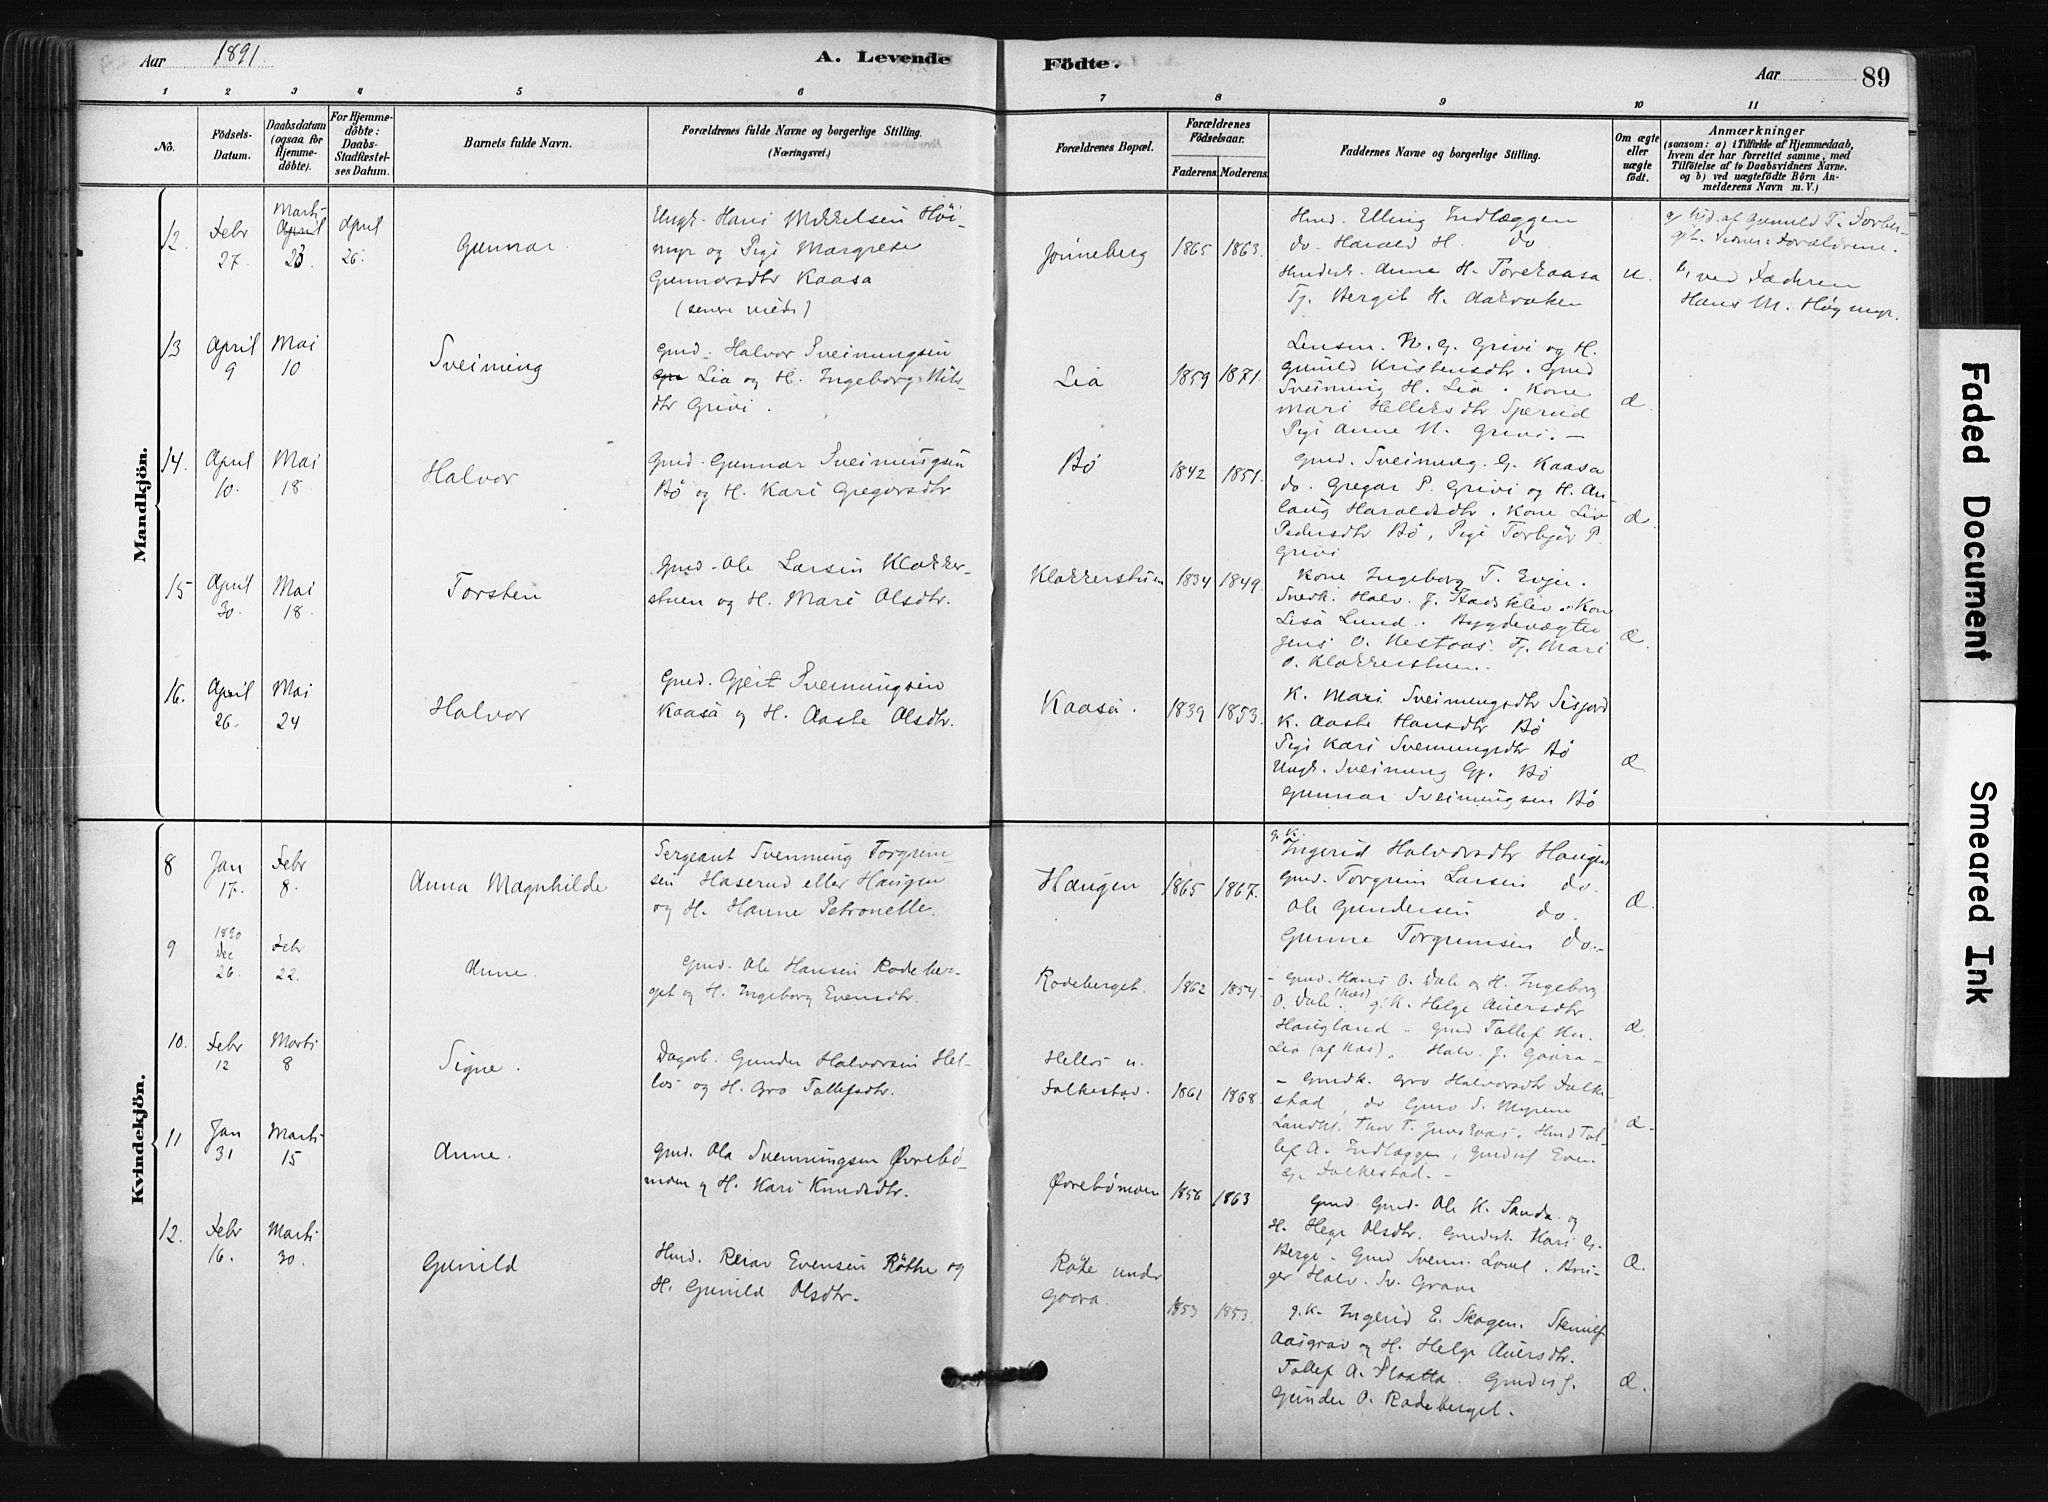 Aar 1891.
A. Levende
Födte.
Aar
89
1
2
3
4
5
6
7
8
9
10
11
No.
Födsels-
Datum.
Daabsdatum
(ogsaa for
Hjemme-
döbte).
For Hjemme-
döbte:
Daabs-
Stadfæstel-
ses Datum.
Barnets fulde Navn.
Forældrenes fulde Navne og borgerlige Stilling.
(Næringsvei.)
Forældrenes Bopæl.
Forældrenes
Födselsaar.
Faderens
Moderens.
Faddernes Navne og borgerlige Stilling.
Om ægte
eller
uægte
födt.
Anmærkninger
(saasom: a) i Tilfælde af Hjemmedaab,
hvem der har forrettet samme, med
Tilföielse af to Daabsvidners Navne.
og b) ved uægtefödte Börn An-
melderens Navn m. V.)
Mandkjön.
12.
Febr
27
Marti
April
23.
April
26.
Gunnar
Ungk. Hans Mikkelsen Höi-
myr og Pige Margrese
Gunnarsdtr Kaasa
(senere viede)
Jönneberg
1865
1863.
Hmd. Elling Indlæggen
do. Harald H. do
Hmdsk. Anne H. Torekaasa
Tj. Bergit H. Aakraken
u.
b, ved Faderen
Hans M. Høgmyr.
13
April
9
Mai
10
Sveinung
Gmd. Halvor Sveinungsen
Lia og H. Ingeborg Nils-
dtr Grivi.
Lia
1859
1871.
Lensm. N. G. Grivi og H.
Gunild Kristensdtr. Gmd
Sveinung H. Lia. Kone
Mari Helleksdtr Sperud
Pige Anne N. Grivi. -
æ.
14.
April
10.
Mai
18.
Halvor
Gmd. Gunnar Sveinungsen
Bö og H. Kari Gregarsdtr
Bö
1842
1851.
Gmd. Sveinung G. Kaasa
do. Gregar P. Grivi og H. As-
laug Haraldsdtr. Kone Liv
Pedersdtr Bö, Pige Torbjör P.
Grivi
æ.
15
April
30.
Mai
18.
Torsten
Gmd. Ole Larsen Klokker-
stuen og H. Mari Olsdtr.
Klokkerstuen
1834
1849.
Kone Ingeborg T. Evju.
Snedk. Halv. J. Stadskleiv. Kone
Lisa Lund. Bygdevægter
Jens O. Nestaas. Tj. Mari
O. Klokkerstuen.
æ.
16.
April
26.
Mai
24
Halvor
Gmd. Gjert Svennungsen
Kaasa og H. Aaste Olsdtr.
Kaasa.
1839
1853.
K. Mari Sveinungsdtr Sisjord
K. Aaste Hansdtr Bö
Pige Kari Svennungsdtr Bö
Ungk. Sveinung Gj. Bö
Gunnar Sveinungsen Bö
æ
Kvindekjön.
8
Jan
17.
Febr
8.
Anna Magnhilde
Sergeant Svennung Torgrim-
sen Haserud eller Haugen
og H. Hanne Petronelle.
Haugen
1865
1867.
g.k.
Ingerid Halvorsdtr Haugen
Gmd. Torgrim Larsen do.
Ole Gundersen do.
Gunne Torgrimsen do.-
æ.
9
1890
Dec
26.
Febr
22.
Anne.
Gmd. Ole Hansen Rodeber-
get og H. Ingeborg Evensdtr.
Rodeberget.
1862
1854.
- Gmd. Hans O. Dale og H. Ingeborg
O. Dale (Næs). g.k. Helge Auersdtr
Haugland. Gmd Tallef Kn.
Lia (af Næs). Halv. J. Gaara -
æ.
10.
Febr
12
Marti
8
Signe.
Dagarb. Gunder Halvorsen Hel-
los og H. Gro Tallefsdtr.
Hellos u.
Folkestad.
1861
1868.
- Gmdk. Gro Halvorsdtr Folke-
stad, do Guro S. Myrene
Landh. Thor T. Juvskaas. Hmd Tal-
lef A. Indlæggen, Gmds. Even
G. Folkestad. -
æ.
11
Jan
31
Marti
15
Anne.
Gmd. Ola Svenningsen Øvrebö-
moen og H. Kari Knudsdtr.
Øvrebömoen
1856
1863
Gmd. Gmd. Ole K. Sanda og
H. Hege Olsdtr. Gmdsk. Kari G.
Berge. Gmd Svenn. Bru-
ger Halv. Sv. Grave
æ.
12.
Febr
16.
Marti
30.
Gunild
Hmd. Reiar Evensen Röthe og
H. Gunild Olsdtr.
Röte under
Gaara.
1853
1853.
g.k. Ingerid E. Skogen.
Aasgrav og H. Helge Auersdtr.
Tallef A. Slaatta. Gmds.
Gunder O. Rodeberget.
æ.
Faded Document
Smeared Ink